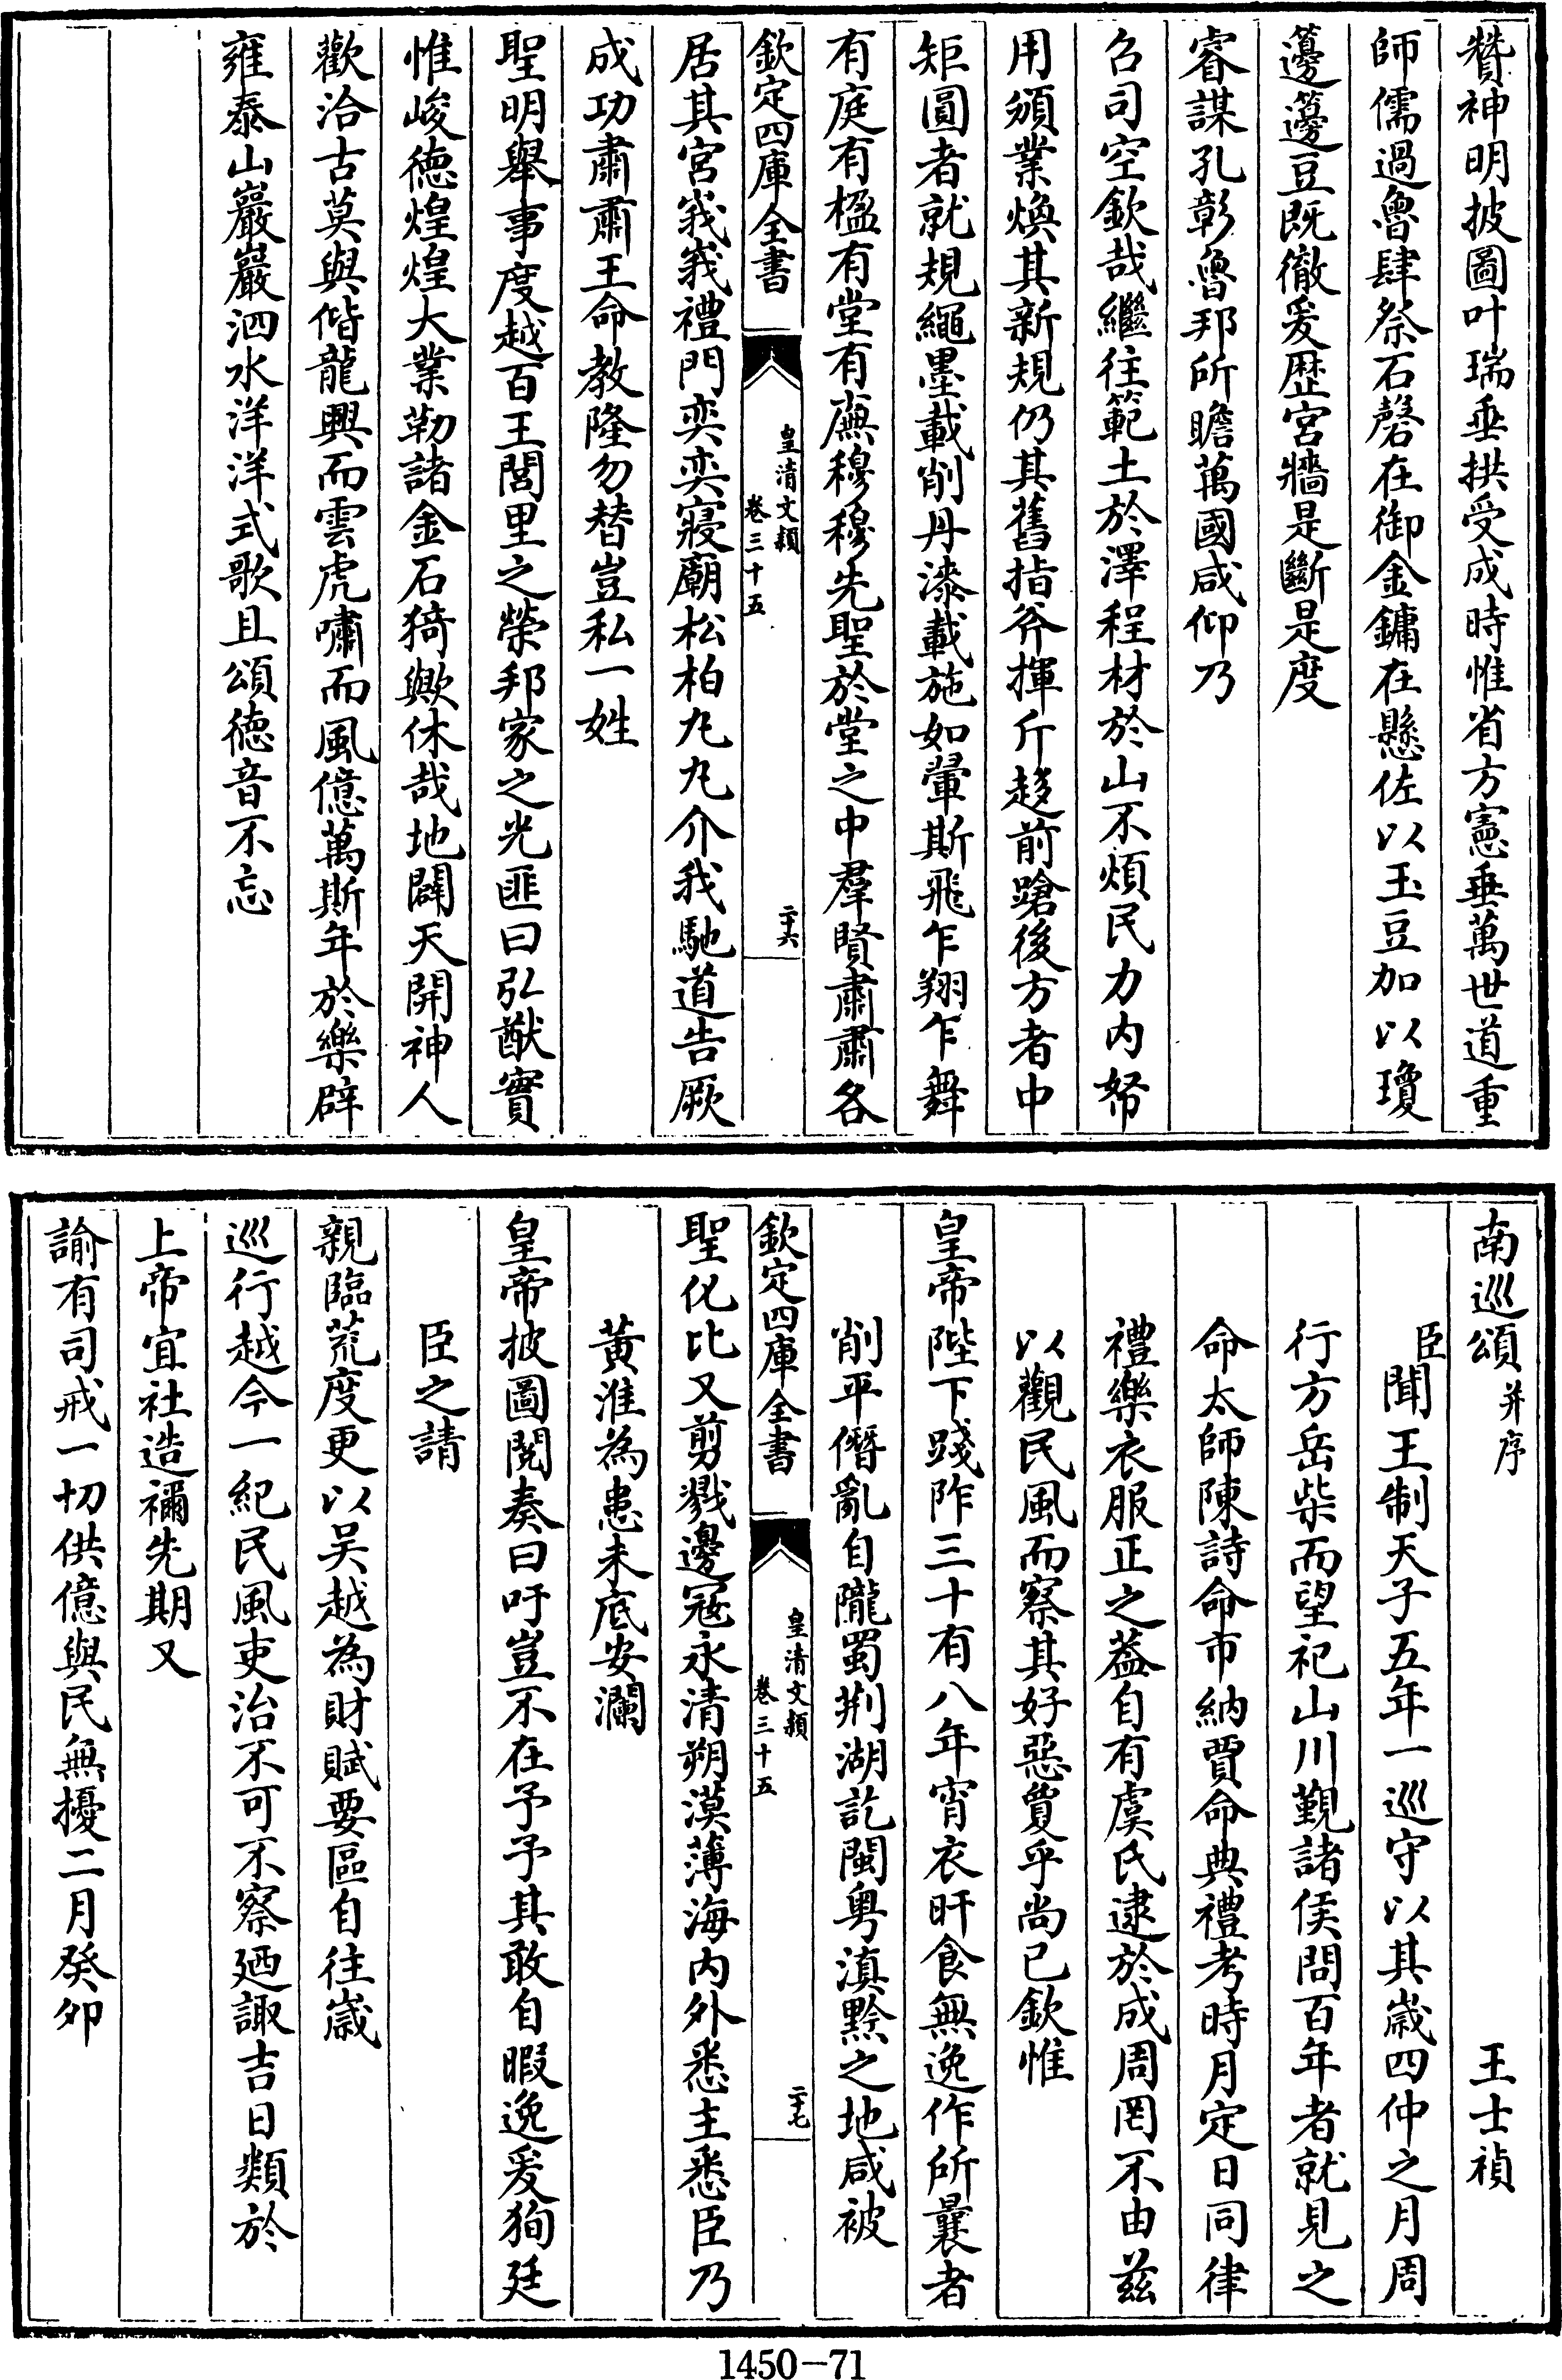 贊神明披圖叶瑞垂拱受成時惟省方憲垂萬世道重
師儒過魯肆祭石磬在御金鏞在懸佐以玉豆加以瓊
籩籩豆既徹爰歷宮牆是斷是度
睿謀孔彰魯邦所瞻萬國咸仰乃
召司空欽哉繼往範土於澤程材於山不煩民力内帑
用頒業煥其新規仍其舊指斧揮斤趍前蹌後方者中
矩圓者就規繩墨載削丹漆載施如翬斯飛乍翔乍舞
有庭有楹有堂有廡穆穆先聖於堂之中羣賢肅肅各
欽定四庫全書
皇清文頴
卷三十五
二十六
居其宮峩峩禮門奕奕寢廟松柏丸丸介我馳道告厥
成功肅肅王命教隆勿替豈私一姓
聖明舉事度越百王閭里之榮邦家之光匪曰弘猷實
惟峻德煌煌大業勒諸金石猗歟休哉地闢天開神人
歡洽古莫與偕龍興而雲虎嘯而風億萬斯年於樂辟
雍泰山巖巖泗水洋洋式歌且頌德音不忘
南巡頌并序 王士禎
臣聞王制天子五年一巡守以其嵗四仲之月周
行方岳柴而望祀山川覲諸侯問百年者就見之
命太師陳詩命市納賈命典禮考時月定日同律
禮樂衣服正之葢自有虞氏逮於成周罔不由兹
以觀民風而察其好惡貿乎尚已欽惟
皇帝陛下踐阼三十有八年宵衣旰食無逸作所曩者
削平僭亂自隴蜀荆湖訖閩粤滇黔之地咸被
欽定四庫全書
皇清文頴
卷三十五
二十七
聖化比又剪戮邊冦永清朔漠薄海内外悉主悉臣乃
黄淮為患未底安瀾
皇帝披圖閲奏曰吁豈不在予予其敢自暇逸爰狥廷
臣之請
親臨荒度更以吴越為財賦要區自往嵗
巡行越今一紀民風吏治不可不察廼諏吉日類於
上帝宜社造禰先期又
諭有司戒一切供億與民無擾二月癸卯
1450-71